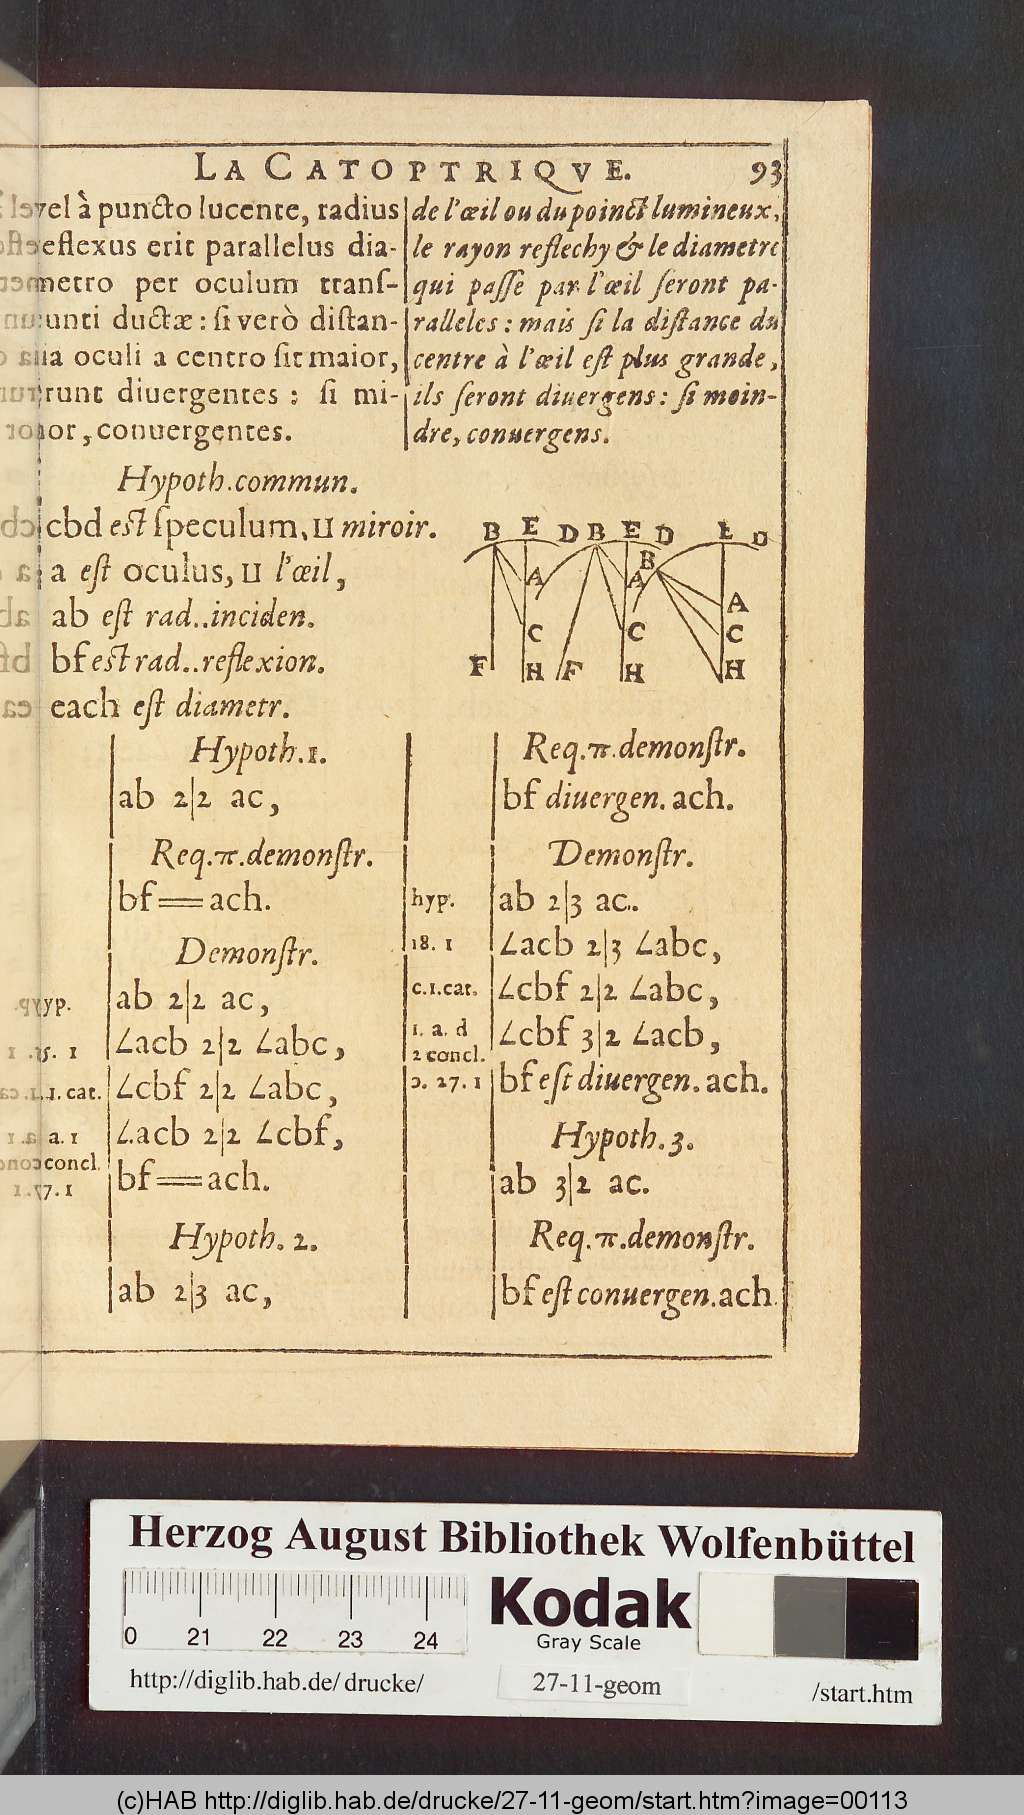 LA CATOPTRIQVE. 93
vel à puncto lucente, radius
reflexus erit parallelus dia-
metro per oculum transſ-
unti ductæ: ſi verò diſtan-
tia oculi a centro ſit maior,
erunt diuergentes: ſi mi-
nor, conuergentes.
de l'œil ou du poinct lumineux,
le rayon reflechy & le diametre
qui paſſe par l'œil ſeront pa-
ralleles: mais ſi la diſtance du
centre à l'œil eſt plus grande,
ils ſeront diuergens: ſi moin-
dre, conuergens.
Hypoth.commun.
cbd eſt ſpeculum, Π miroir.
a eſt oculus, Π l'œil,
ab eſt rad..inciden.
bf eſt rad..reflexion.
each eſt diametr.
B E D B E D B E D
A A A
C C C
F H F H H
Hypoth.1.
ab 2|2 ac,
Req.π.demonſtr.
bf══ach.
Demonſtr.
hyp. ab 2|2 ac,
5. 1 ∠acb 2|2 ∠abc,
1. cat. ∠cbf 2|2 ∠abc,
a. 1 ∠.acb 2|2 ∠cbf,
concl.
27. 1 bf══ach.
Hypoth. 2.
ab 2|3 ac,
Req.π.demonſtr.
bf diuergen. ach.
Demonſtr.
hyp. ab 2|3 ac..
18. 1 ∠acb 2|3 ∠abc,
c.1.cat. ∠cbf 2|2 ∠abc,
1. a. d ∠cbf 3|2 ∠acb,
2 concl.
ↄ. 27. 1 bf eſt diuergen. ach.
Hypoth. 3.
ab 3|2 ac.
Req.π.demonſtr.
bf eſt conuergen.ach.
Herzog August Bibliothek Wolfenbüttel
0 21 22 23 24
Kodak
Gray Scale
http://diglib.hab.de/drucke/ 27-11-geom /start.htm
(c)HAB http://diglib.hab.de/drucke/27-11-geom/start.htm?image=00113